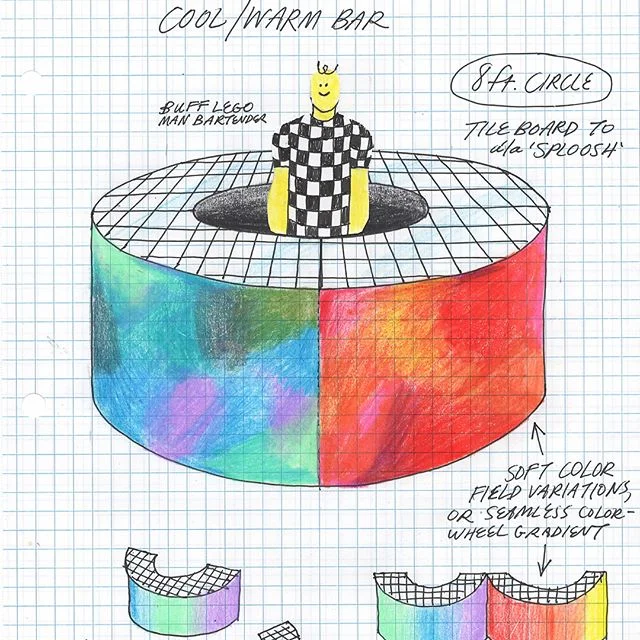 COOL/WARM BAR
8ft. CIRCLE
BUFF LEGO
MAN BARTENDER
TILE BOARD TO
'SPLOOSH'
SOFT COLOR
FIELD VARIATIONS,
OR SEAMLESS COLOR-
WHEEL GRADIENT